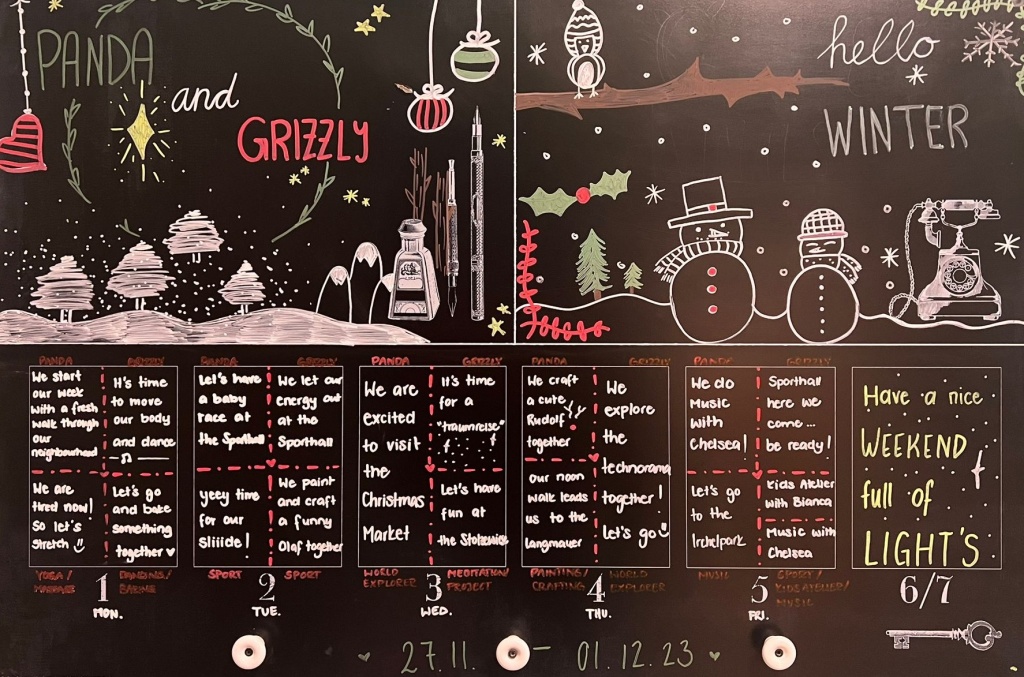 PANDA
and
GRIZZLY
hello
WINTER
PANDA
We start
our week
with a fresh
walk through
our
neighbourhood
We are
tired now!
So let's
stretch
YOGA/
MASSAGE
GRIZZLY
It's time
to move
our body
and dance
Let's go
and bake
something
together ♥
DANCING/
BAKING
1
MON.
PANDA
Let's have
a baby
race at
the Sporthall
yeey time
for our
sliiide!
SPORT
GRIZZLY
We let our
energy out
at the
Sporthall
We paint
and craft
a funny
Olaf together
SPORT
2
TUE.
PANDA
We are
excited
to visit
the
Christmas
Market
WORLD
EXPLORER
GRIZZLY
It's time
for a
"traumreise"
Let's have
fun at
the Stolzewiese
MEDITATION/
PROJECT
3
WED.
PANDA
We craft
a cute
Rudolf
together
our noon
walk leads
us to the
langmauer
PAINTING/
CRAFTING
GRIZZLY
We
explore
the
technorama
together!
Let's go
WORLD
EXPLORER
4
THU.
PANDA
We do
Music
with
Chelsea!
Let's go
to the
Irchelpark
MUSIC
GRIZZLY
Sporthall
here we
come...
be ready!
Kids Atelier
with Bianca
Music with
Chelsea
SPORT/
KIDSATELIER/
MUSIC
5
FRI.
Have a nice
WEEKEND
full of
LIGHT'S
6/7
27.11. – 01.12.23